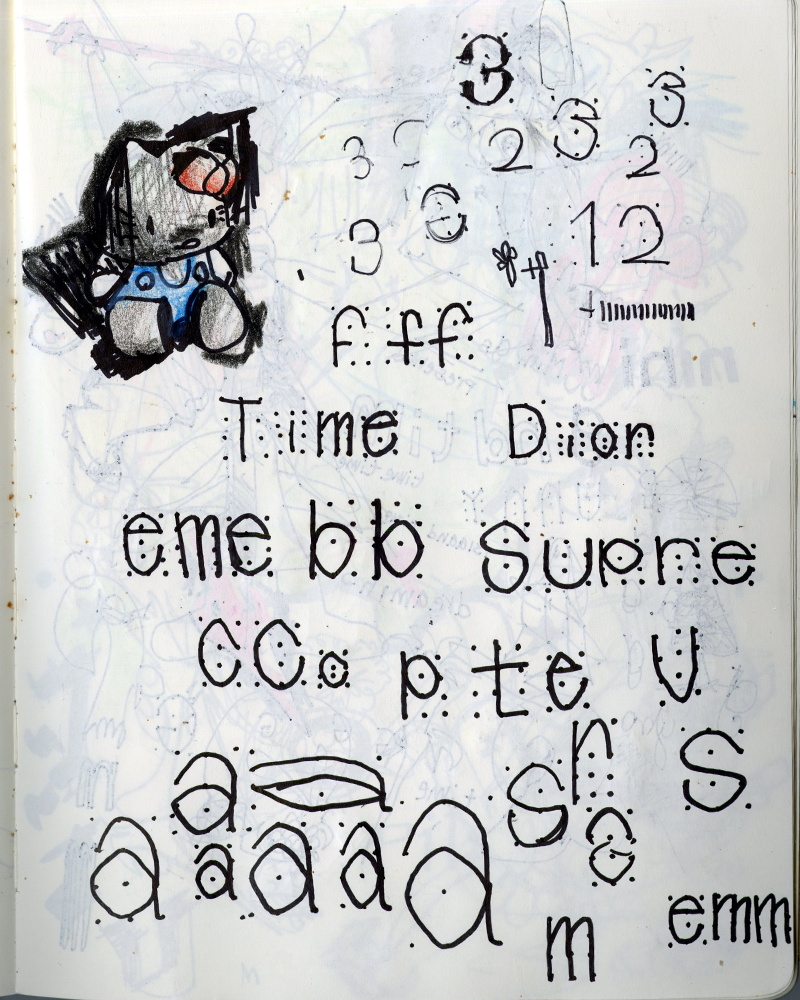 3
3 2 3 2 3
3 12
f ff
Time Dion
eme bb Supre
CCo p t e V
a a s n s
a a a a a
m emm